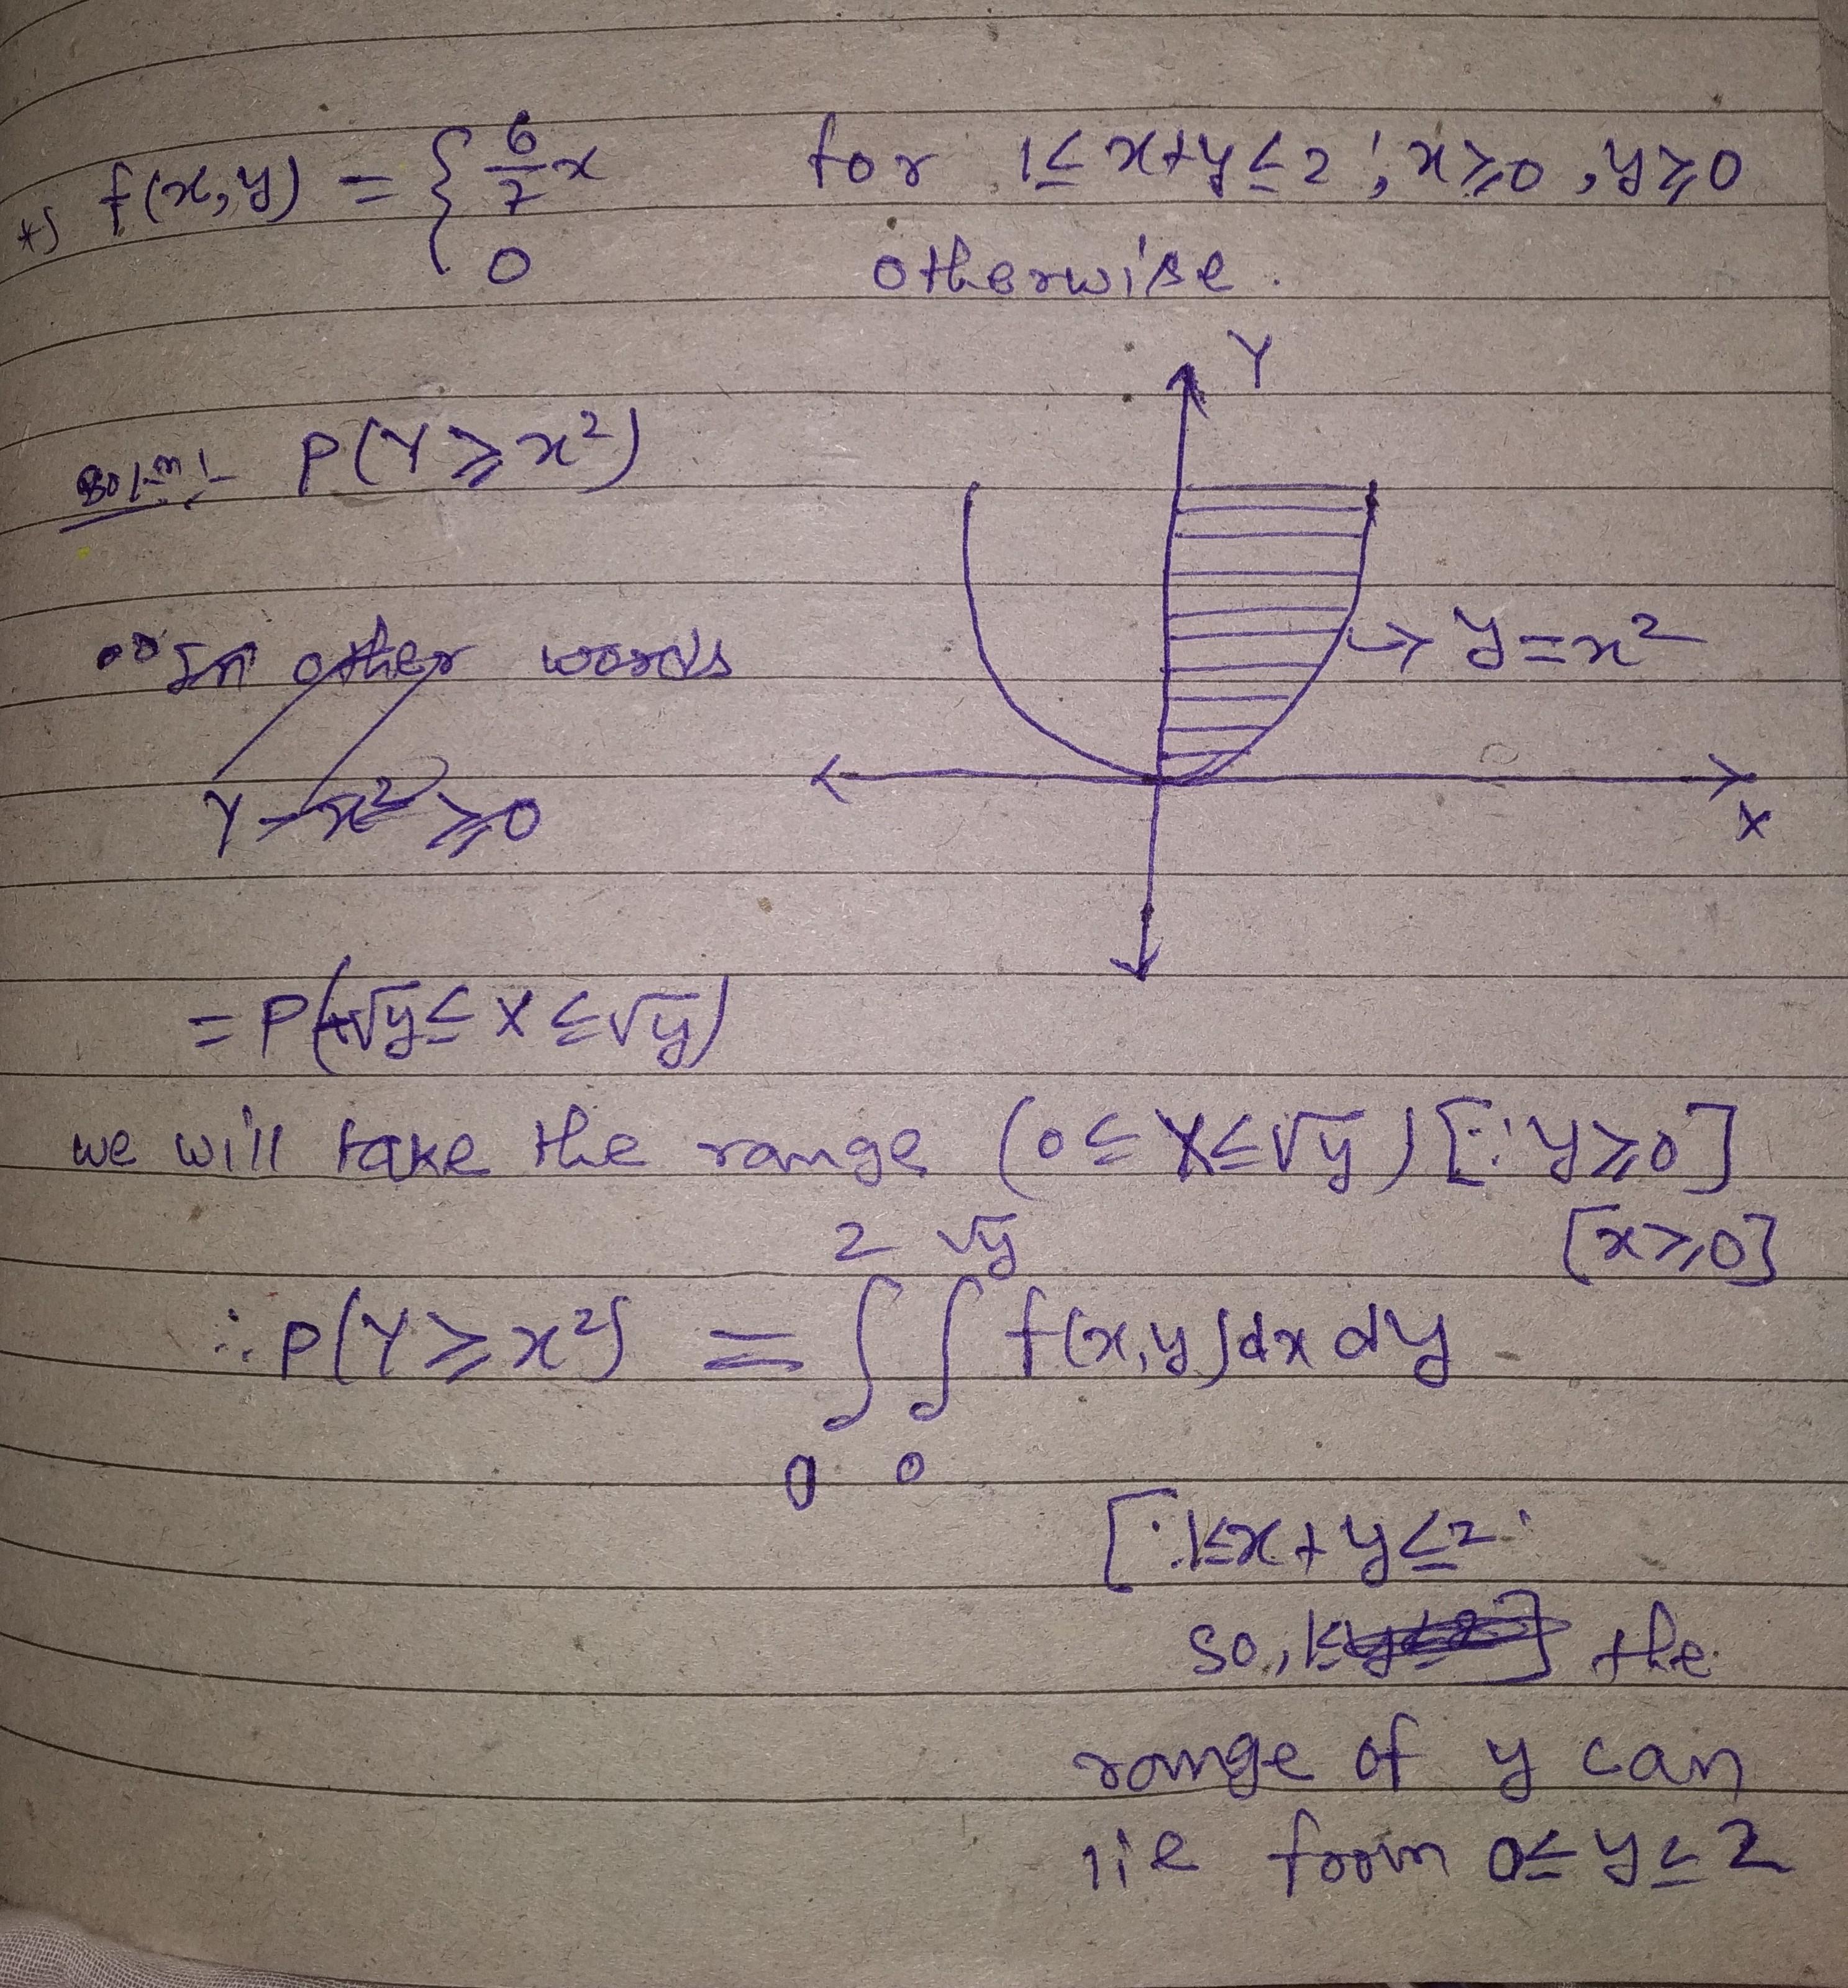 *) f(x,y) = { 6/7 x for 1≤x+y≤2 ; x≥0, y≥0
0 otherwise.
Y
Sol^n:- P(Y≥x²)
In other words
→ y=x²
Y-x²≥0
X
= P(+√y≤X≤√y)
we will take the range (0≤X≤√y) [∵ y≥0]
[x≥0]
∴ P(Y≥x²) = ∫₀² ∫₀^√y f(x,y)dx dy
[∵ 1≤x+y≤2
so, the
range of y can
lie from 0≤y≤2